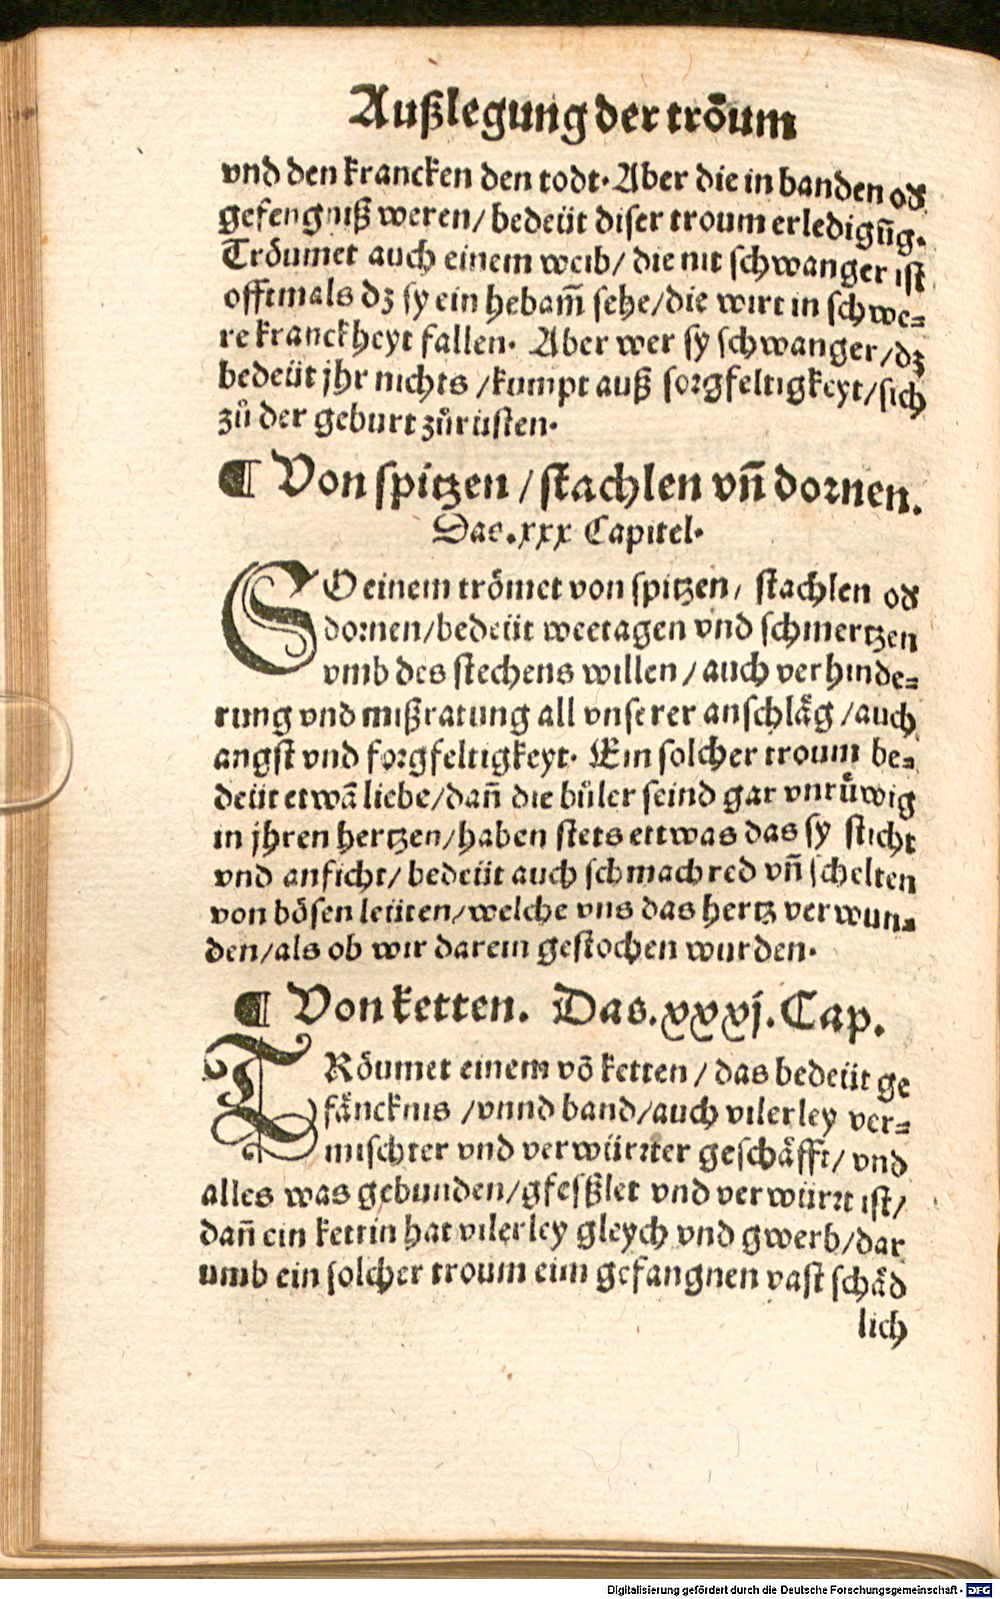 Außlegung der trõum
vnd den krancken den todt. Aber die in banden oď
gefengnuß weren/ bedeüt diser troum erledigũg.
Trõumet auch einem weib/ die nit schwanger ist
offtmals dz sy ein hebam̃ sehe/die wirt in schwe⸗
re kranckheyt fallen. Aber wer sy schwanger/dz
bedeüt jhr nichts /kumpt auß sorgfeltigkeyt/sich
zů der geburt zůrüsten.
¶ Von spitzen / stachlen vñ dornen.
Das.xxx Capitel.
SO einem trõmet von spitzen/ stachlen oď
dornen/bedeüt weetagen vnd schmertzen
vmb des stechens willen / auch verhinde⸗
rung vnd mißratung all vnserer anschläg /auch
angst vnd sorgfeltigkeyt. Ein solcher troum be⸗
deüt etwã liebe/dañ die bůler seind gar vnrůwig
in jhren hertzen/haben stets ettwas das sy sticht
vnd anficht/ bedeüt auch schmachred vñ schelten
von bösen leüten/welche vns das hertz verwun⸗
den/als ob wir darein gestochen wurden.
¶ Von ketten. Das.xxxj.Cap.
TRõumet einem võ ketten / das bedeüt ge
fäncknis /vnnd band/auch vilerley ver⸗
mischter vnd verwürrter geschäfft/ vnd
alles was gebunden/gfesßlet vnd verwürrt ist/
dañ ein kettin hat vilerley gleych vnd gwerb/dar
umb ein solcher troum eim gefangnen vast schäd
lich
Digitalisierung gefördert durch die Deutsche Forschungsgemeinschaft - DFG